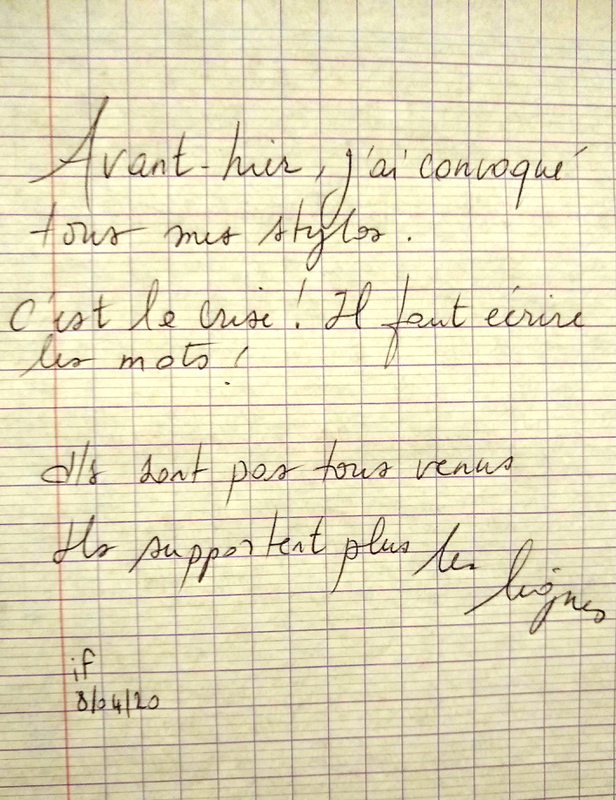 Avant-hier, j'ai convoqué
tous mes stylos.
C'est la crise ! Il faut écrire
les mots !
Ils sont pas tous venus
Ils supportent plus les lignes
if
8/04/20